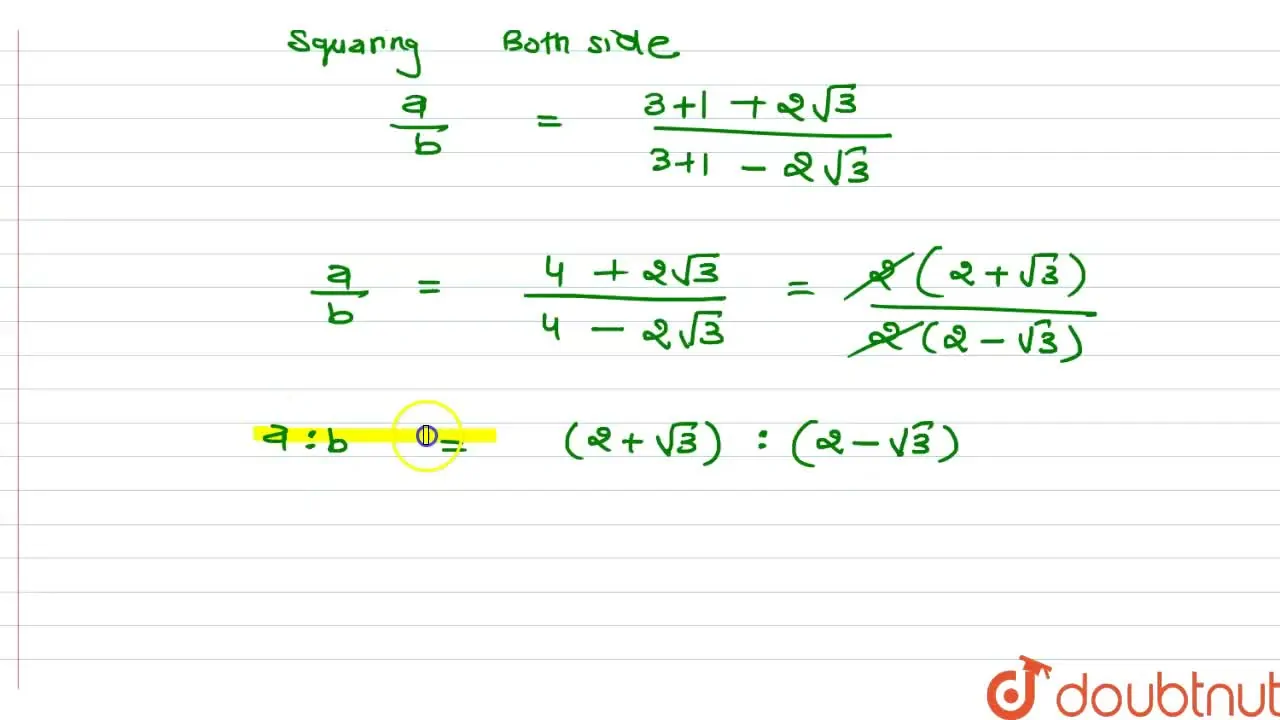 Squaring Both side
a/b = (3+1 + 2√3)/(3+1 - 2√3)
a/b = (4 + 2√3)/(4 - 2√3) = 2(2+√3)/2(2-√3)
a : b = (2+√3) : (2-√3)
doubtnut